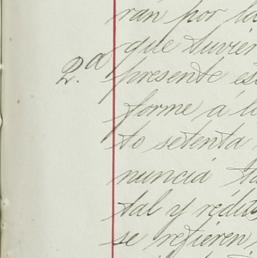 rán por la
que tuvier
2.a presente es
forme á la
to setenta
nuncia ta
tal y rédit
se refieren,